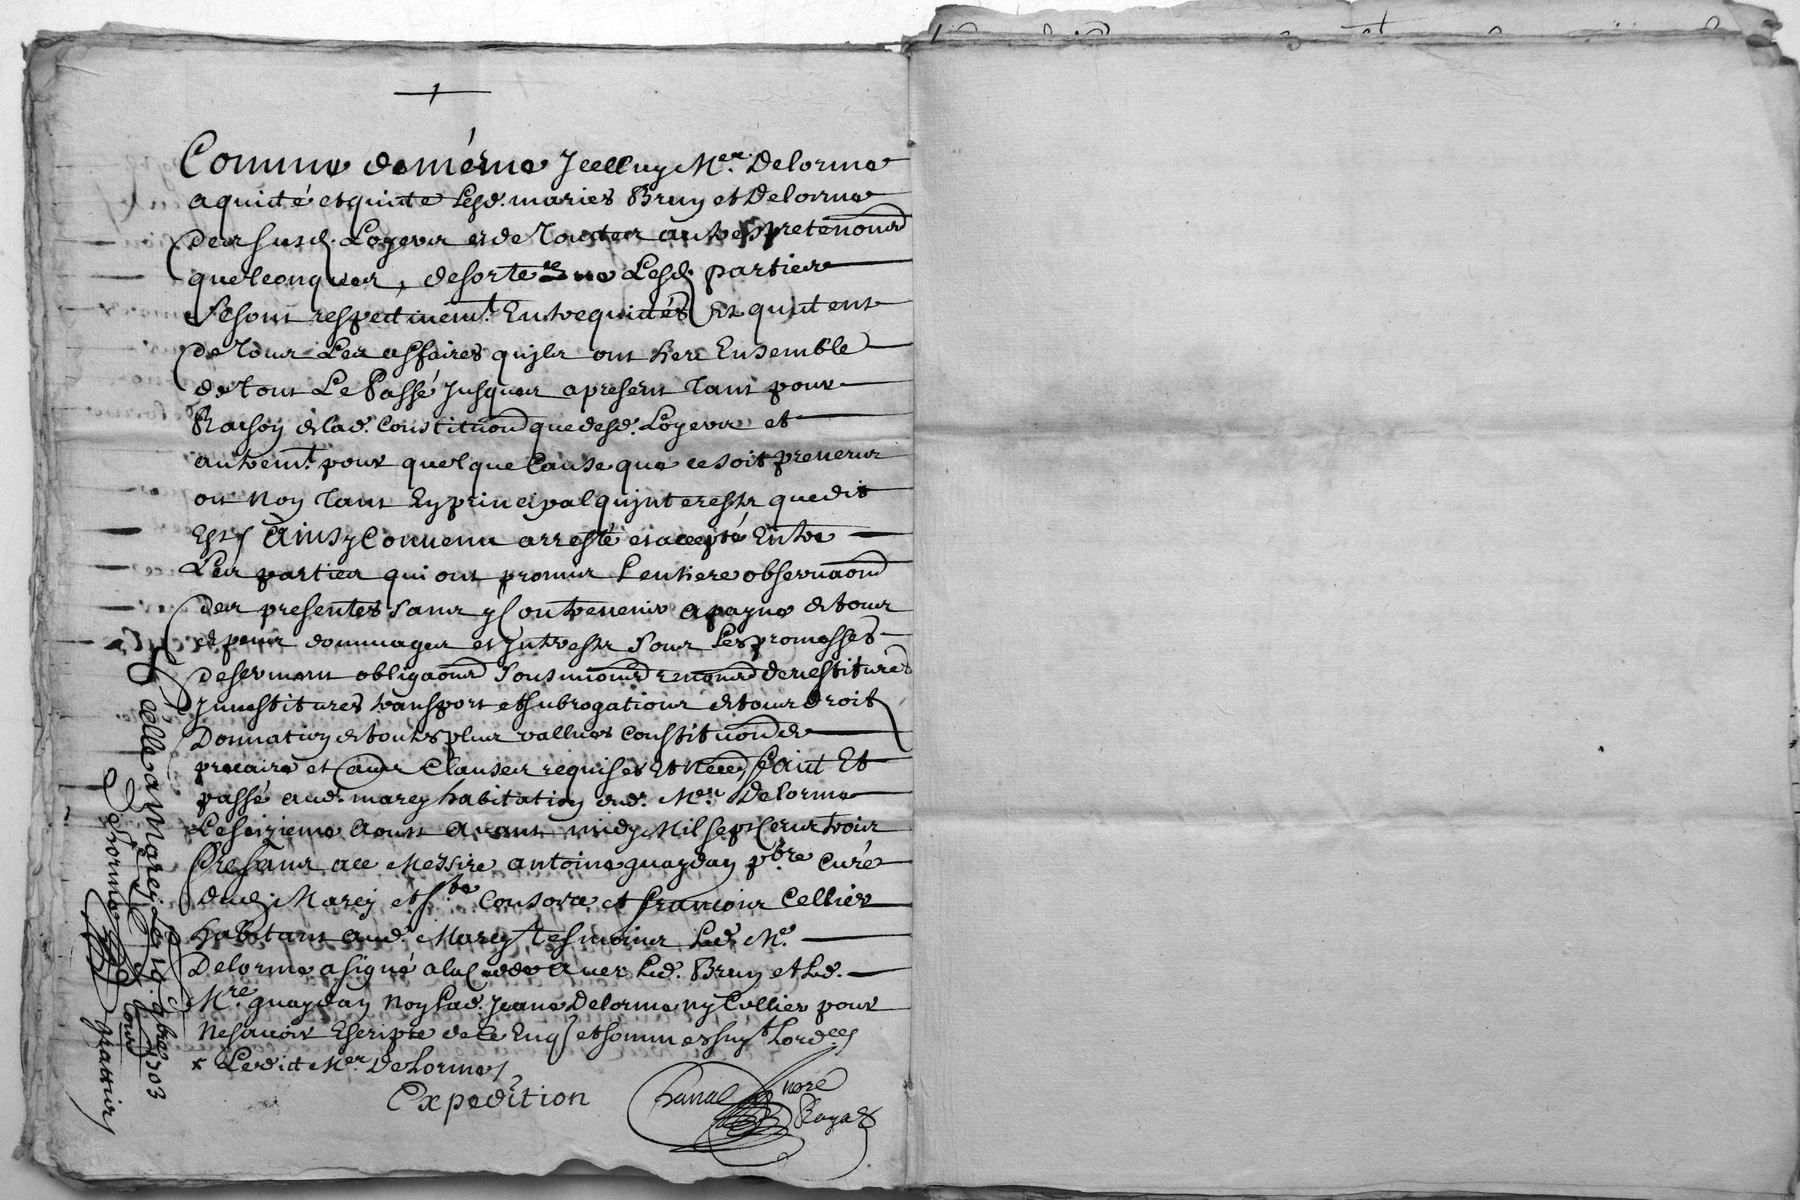 Comme de méme Jcelluy Mer. Delorme
a quitté et quitte Lesd. maries Bruy et Delorme
des susd. Loyers et de toutes autres pretentions
quelconques, desorte que Lesd. parties
se sont respectivemt. Entrequittés Et quittent
de tous Les affaires quils ont heu Ensemble
de tout Le Passé Jusques a present tant pour
Raison de lad. Constitution que desd. Loyers et
autremt. pour quelque Cause que ce soit preveues
ou Non tant En principal qu'jnterests que dit
Est, Ainsy Convenu arresté et accepté Entre
Les parties qui ont promis Lentiere observaon
des presentes sans y Contrevenir a payne de tous
despens dommages et Jntrests sous Les promesses
de serment obligaons soumions renons devestitures
Jnvestitures transport et subrogations de tous droits
Donnation de toutes plus vallues Constitution de
precaire et aues Clauses requises Et necess. fait Et
passé aud. marcy habitation dud. Mer. Delorme
Le seizieme Aoust avant midy Mil sept Cens trois
Presans a ce Messire antoine guaydan pbre Curé
dud. Marcy et Ste Consorce et francois Cellier
habitant aud. Marcy tesmoins Led. Me.
Delorme a signé a la Cede avec Led. Bruy et Led.
Mre guaydan non Lad. Jeane Delorme ny Cellier pour
ne scavoir Escripre de ce Enqs et sommes suyt. Lordce
x Ledict Mer. Delorme
Expedition
Chanal nore Royal
Scellé a Marcy Le 9bre 1703
Delorme